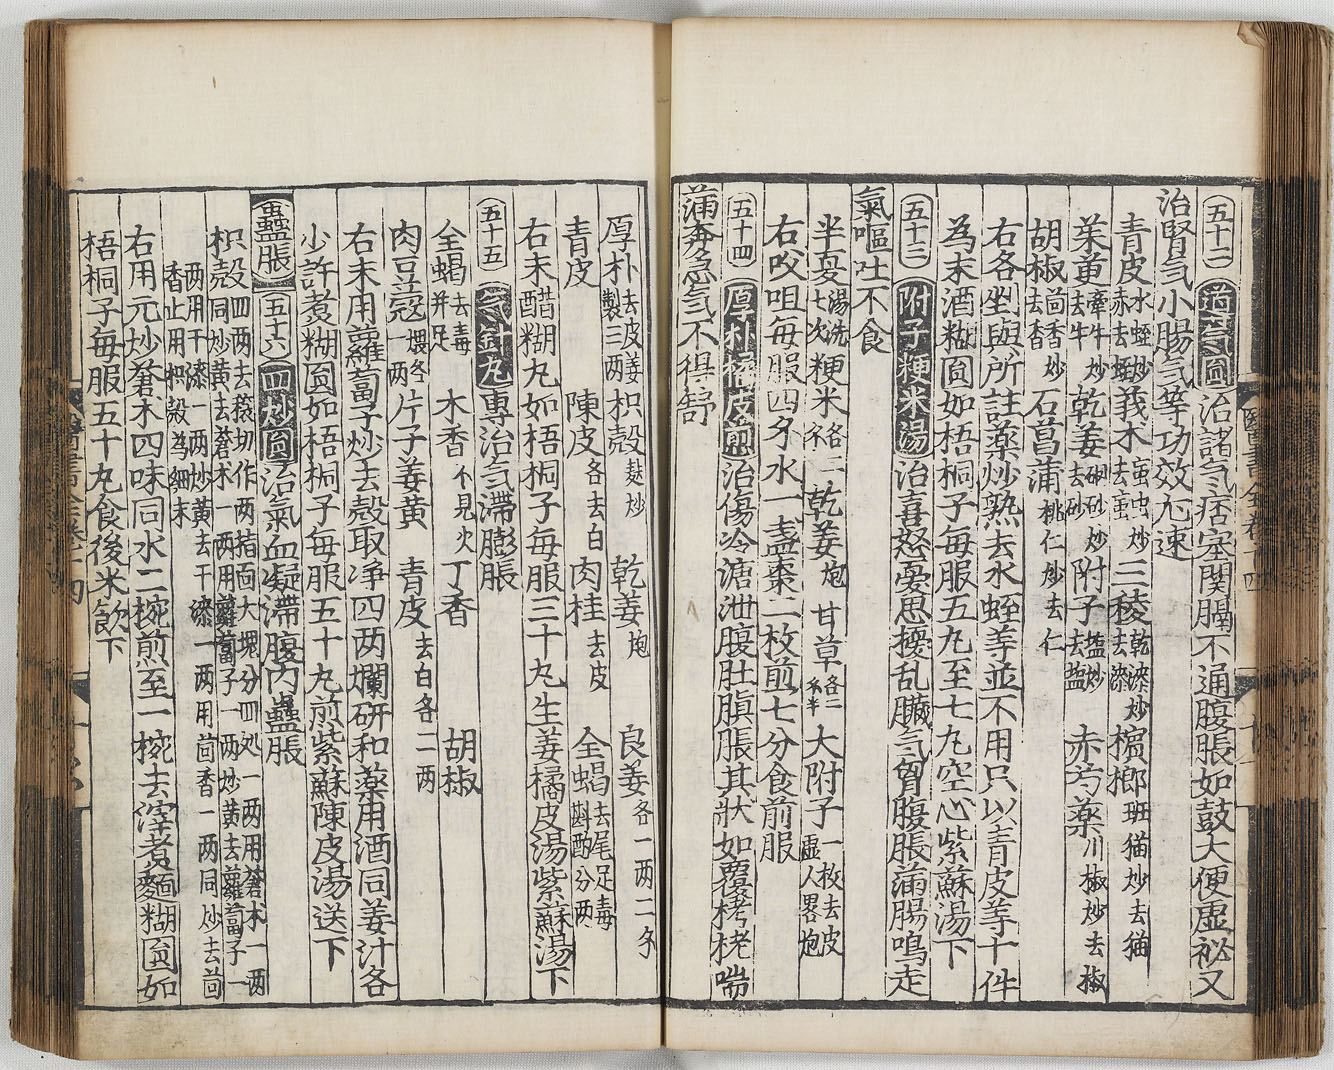 五十二 道氣圓 治諸氣痞塞関膈不通腹脹如鼓大便虛祕又
治腎氣小腸氣等功效尤速
青皮 水蛭炒赤去蛭 莪术 䖟虫炒去䖟 三稜 乾漆炒去漆 檳榔 班猫炒去猫
茱萸 牽牛炒去牛 乾姜 硇砂炒去砂 附子 塩炒去塩 赤芍藥 川椒炒去椒
胡椒 茴香炒去香 石菖蒲 桃仁炒去仁
右各剉與所註藥炒熟去水蛭等並不用只以青皮等十件
為末酒糊圓如梧桐子每服五丸至七丸空心紫蘇湯下
五十三 附子粳米湯 治喜怒憂思擾乱臓氣胷腹脹滿腸鳴走
氣嘔吐不食
半夏 湯洗七次 粳米 各二 乾姜 炮 甘草 各二 半 大附子 一枚去皮虛人畧炮
右㕮咀每服四夕水一盞棗二枚煎七分食前服
五十四 厚朴橘皮煎 治傷冷溏泄腹肚䐜脹其狀如覆栲栳喘
滿奔急氣不得舒
厚朴 去皮姜製三两 枳殻 麸炒 乾姜 炮 良姜 各一两二夕
青皮 陳皮 各去白 肉桂 去皮 全蝎 去尾足毒斟酌分两
右末醋糊丸如梧桐子每服三十丸生姜橘皮湯紫蘇湯下
五十五 氣針丸 專治氣滯膨脹
全蝎 去毒并足 木香 不見火 丁香 胡椒
肉豆蔻 煨各一两 片子姜黄 青皮 去白各二两
右末用蘿蔔子炒去殻取净四两爛研和藥用酒同姜汁各
少許煮糊圓如梧桐子每服五十丸煎紫蘇陳皮湯送下
蠱脹 五十六 四炒圓 治氣血凝滯腹内蠱脹
枳殻 四两去穰切作两指面大塊分四処一两用蒼术一两同炒黄去蒼术一两用蘿蔔子一两炒黄去蘿蔔子一
两用干漆一两炒黄去干漆一两用茴香一两同炒去茴香止用枳殻為細末
右用元炒蒼术四味同水二椀煎至一椀去滓煮麵糊圓如
梧桐子每服五十丸食後米飲下